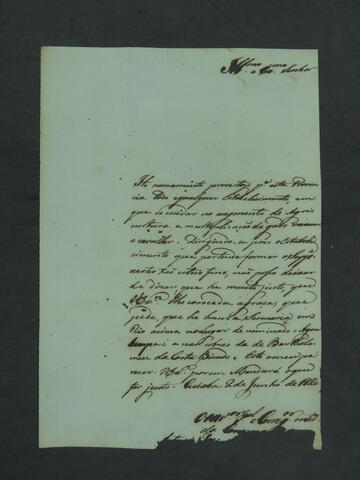 Illmo. e Exmo. Senhor
He sumamente proveitozo pa. esta Provin
cia todo equalquer Estabelecimento, em
que se cuidar no augmento da Agri
cultura, e multiplicação de gado vacum
e cavallar. Dirigindo-se pois o Estabele
cimento que pertende formar o Suppe.
a estes tão uteis fins, não posso deixar
de dizer, que he muito justo que
VExa. lhe conceda a graça, que
pede, que he huma Sesmaria em
Rio acima no lugar denominado
e a nas sobras da de Bartholo
meu da Costa Este o meu pa
recer. VExa. porem Mandará o que
for justo. Cuiabá 2 de Junho de 1820